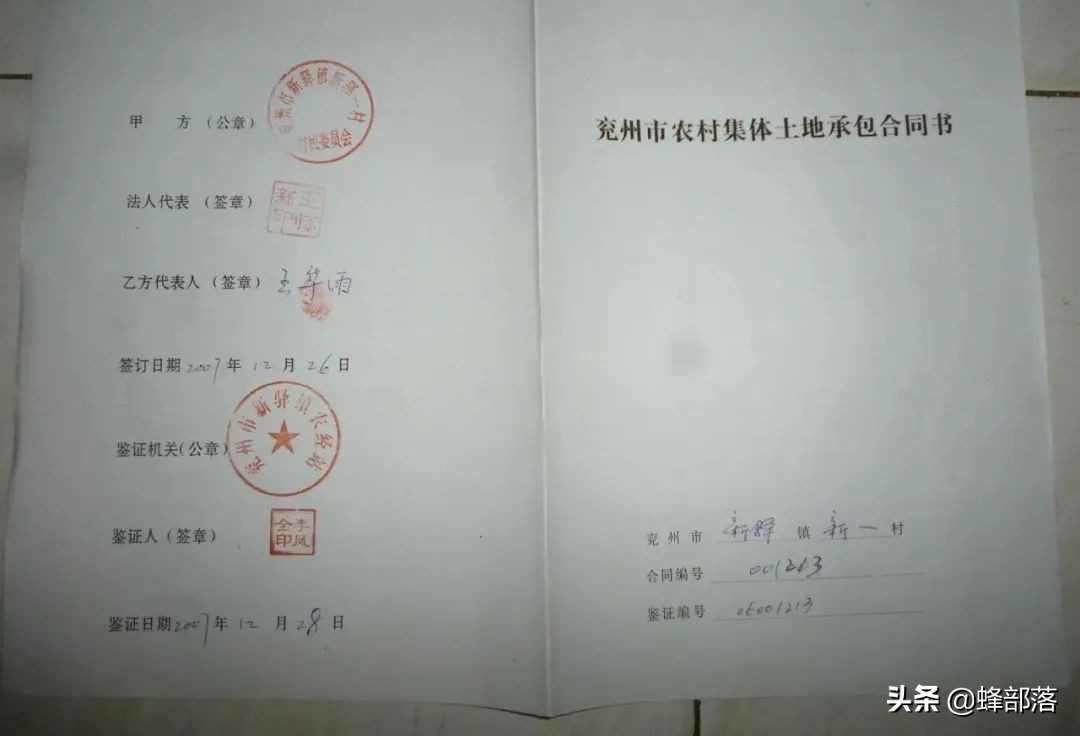 甲 方（公章）
兖州市新驿镇新驿一村
村民委员会
法人代表（签章）
乙方代表人（签章）王华雨
签订日期2007年12月26日
兖州市新驿镇农经站
鉴证机关(公章)
鉴证人（签章）
李凤全印
鉴证日期2007年12月28日
兖州市农村集体土地承包合同书
兖州市 新驿 镇 新一 村
合同编号 001213
鉴证编号 06001213
头条 @蜂部落